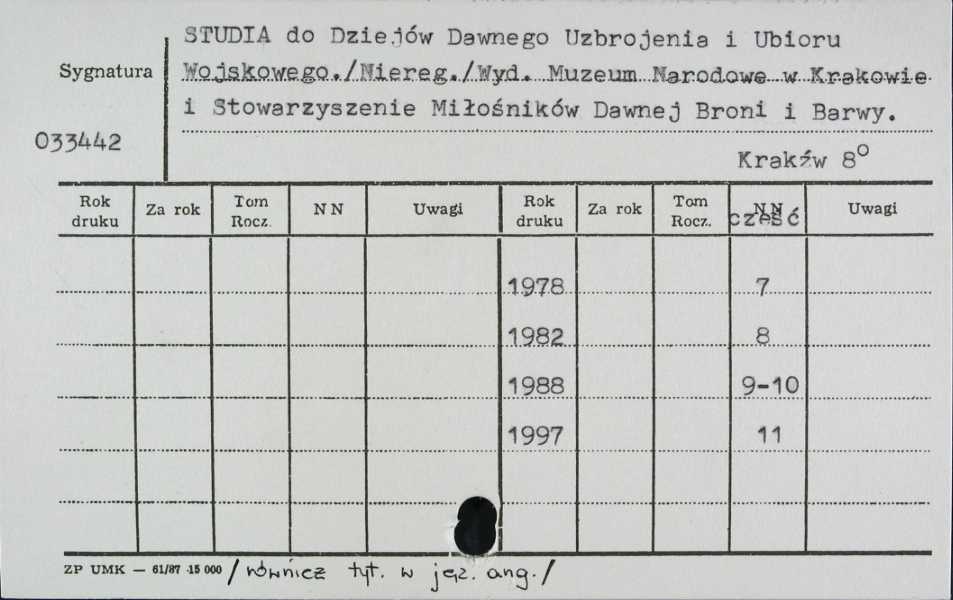 STUDIA do Dziejów Dawnego Uzbrojenia i Ubioru
Sygnatura
Wojskowego./Niereg./Wyd. Muzeum Narodowe w Krakowie
i Stowarzyszenie Miłośników Dawnej Broni i Barwy.
033442
Kraków 8º
Rok druku Za rok Tom Rocz. NN Uwagi Rok druku Za rok Tom Rocz. NN Uwagi
część
1978 7
1982 8
1988 9-10
1997 11
ZP UMK — 61/87 15 000 /również tyt. w jęz. ang./